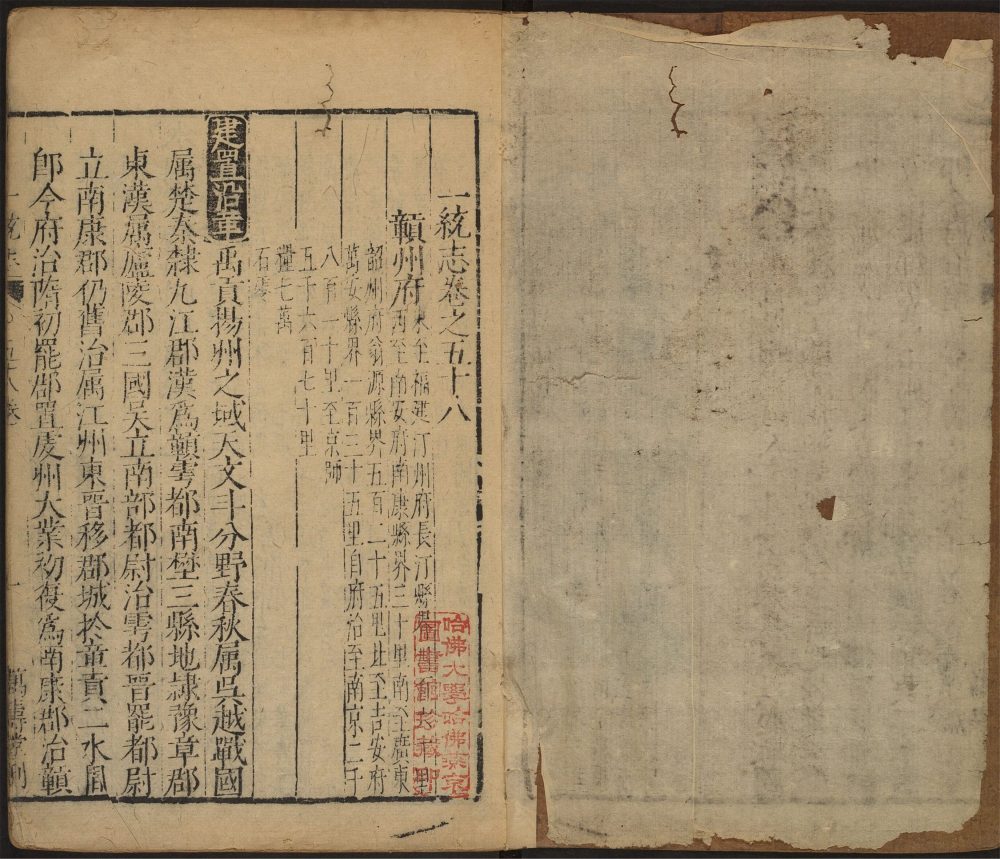 一統志卷之五十八
贛州府
東至福建汀州府長汀縣界
西至南安府南康縣界三十里南至廣東
韶州府翁源縣界五百二十五里北至吉安府
萬安縣界一百二十五里自府治至南京二千
八百一十里至京師
五千六百七十里
糧七萬
石零
建置沿革
禹貢揚州之域天文斗分野春秋属吳越戰國
属楚秦隸九江郡漢爲贛雩都南埜三縣地隷豫章郡
東漢属廬陵郡三國吳立南部都尉治雩都晉罷都尉
立南康郡仍舊治属江州東晉移郡城於章貢二水間
卽今府治隋初罷郡置虔州大業初復爲南康郡治贛
一統志
五十八卷
一
萬壽堂刊
哈佛大學哈佛燕京
圖書館珍藏印